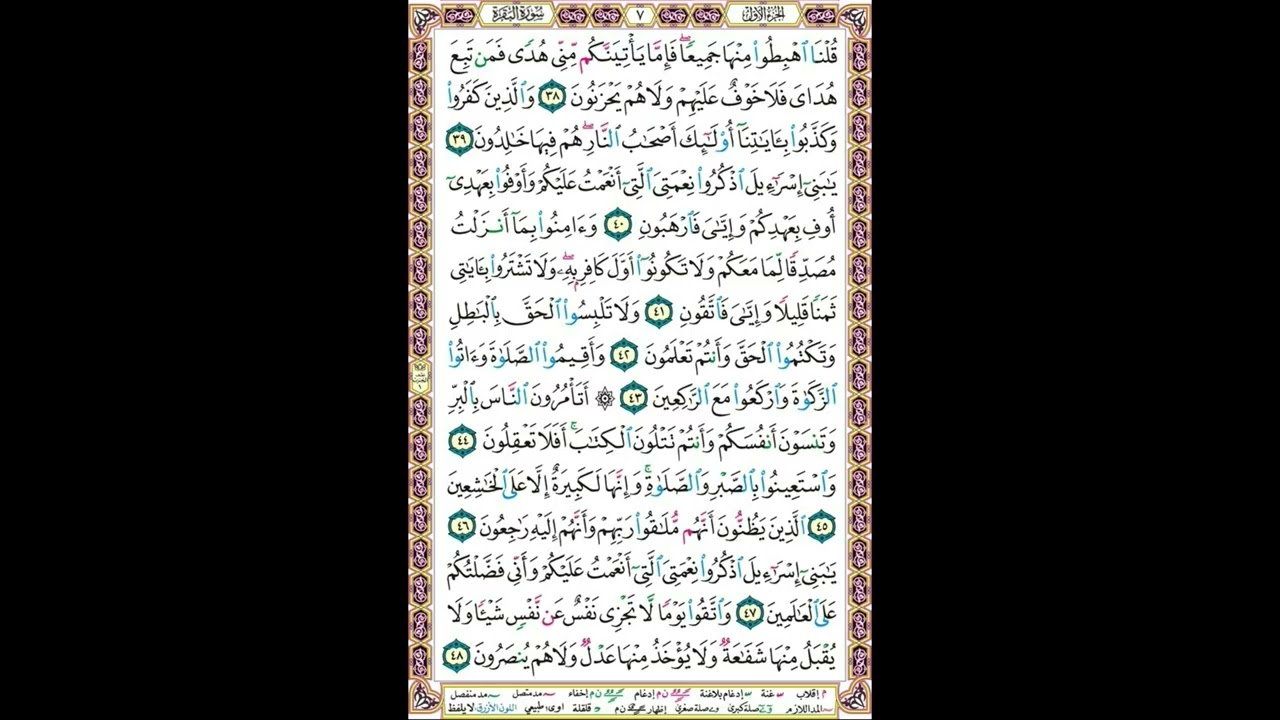 الجزء الأول ٧ سورة البقرة
قُلْنَا ٱهْبِطُوا۟ مِنْهَا جَمِيعًۭا ۖ فَإِمَّا يَأْتِيَنَّكُم مِّنِّى هُدًۭى فَمَن تَبِعَ
هُدَاىَ فَلَا خَوْفٌ عَلَيْهِمْ وَلَا هُمْ يَحْزَنُونَ ٣٨ وَٱلَّذِينَ كَفَرُوا۟
وَكَذَّبُوا۟ بِـَٔايَـٰتِنَآ أُو۟لَـٰٓئِكَ أَصْحَـٰبُ ٱلنَّارِ ۖ هُمْ فِيهَا خَـٰلِدُونَ ٣٩
يَـٰبَنِىٓ إِسْرَٰٓءِيلَ ٱذْكُرُوا۟ نِعْمَتِىَ ٱلَّتِىٓ أَنْعَمْتُ عَلَيْكُمْ وَأَوْفُوا۟ بِعَهْدِىٓ
أُوفِ بِعَهْدِكُمْ وَإِيَّـٰىَ فَٱرْهَبُونِ ٤٠ وَءَامِنُوا۟ بِمَآ أَنزَلْتُ
مُصَدِّقًۭا لِّمَا مَعَكُمْ وَلَا تَكُونُوٓا۟ أَوَّلَ كَافِرٍۭ بِهِۦ ۖ وَلَا تَشْتَرُوا۟ بِـَٔايَـٰتِى
ثَمَنًۭا قَلِيلًۭا وَإِيَّـٰىَ فَٱتَّقُونِ ٤١ وَلَا تَلْبِسُوا۟ ٱلْحَقَّ بِٱلْبَـٰطِلِ
وَتَكْتُمُوا۟ ٱلْحَقَّ وَأَنتُمْ تَعْلَمُونَ ٤٢ وَأَقِيمُوا۟ ٱلصَّلَوٰةَ وَءَاتُوا۟
ٱلزَّكَوٰةَ وَٱرْكَعُوا۟ مَعَ ٱلرَّٰكِعِينَ ٤٣ ۞ أَتَأْمُرُونَ ٱلنَّاسَ بِٱلْبِرِّ
وَتَنسَوْنَ أَنفُسَكُمْ وَأَنتُمْ تَتْلُونَ ٱلْكِتَـٰبَ ۚ أَفَلَا تَعْقِلُونَ ٤٤
وَٱسْتَعِينُوا۟ بِٱلصَّبْرِ وَٱلصَّلَوٰةِ ۚ وَإِنَّهَا لَكَبِيرَةٌ إِلَّا عَلَى ٱلْخَـٰشِعِينَ
٤٥ ٱلَّذِينَ يَظُنُّونَ أَنَّهُم مُّلَـٰقُوا۟ رَبِّهِمْ وَأَنَّهُمْ إِلَيْهِ رَٰجِعُونَ ٤٦
يَـٰبَنِىٓ إِسْرَٰٓءِيلَ ٱذْكُرُوا۟ نِعْمَتِىَ ٱلَّتِىٓ أَنْعَمْتُ عَلَيْكُمْ وَأَنِّى فَضَّلْتُكُمْ
عَلَى ٱلْعَـٰلَمِينَ ٤٧ وَٱتَّقُوا۟ يَوْمًۭا لَّا تَجْزِى نَفْسٌ عَن نَّفْسٍۢ شَيْـًۭٔا وَلَا
يُقْبَلُ مِنْهَا شَفَـٰعَةٌۭ وَلَا يُؤْخَذُ مِنْهَا عَدْلٌۭ وَلَا هُمْ يُنصَرُونَ ٤٨
م إقلاب غنة إدغام بلاغنة ن م إدغام ن م إخفاء مد متصل مد منفصل
المد اللازم صلة كبرى صلة صغرى إظهار ن م قلقلة اوى: طبيعي اللون الأزرق لا يلفظ